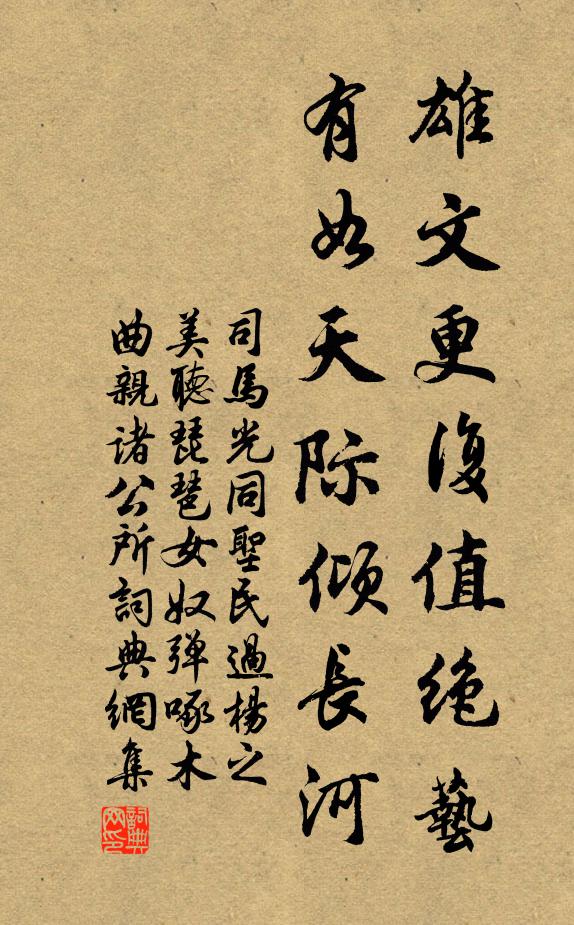 雄文更復值绝藝
有如天际倾長河
司馬光同聖民過楊之
美聽琵琶女奴弹啄木
曲親诸公所詞典網集
詞典网印